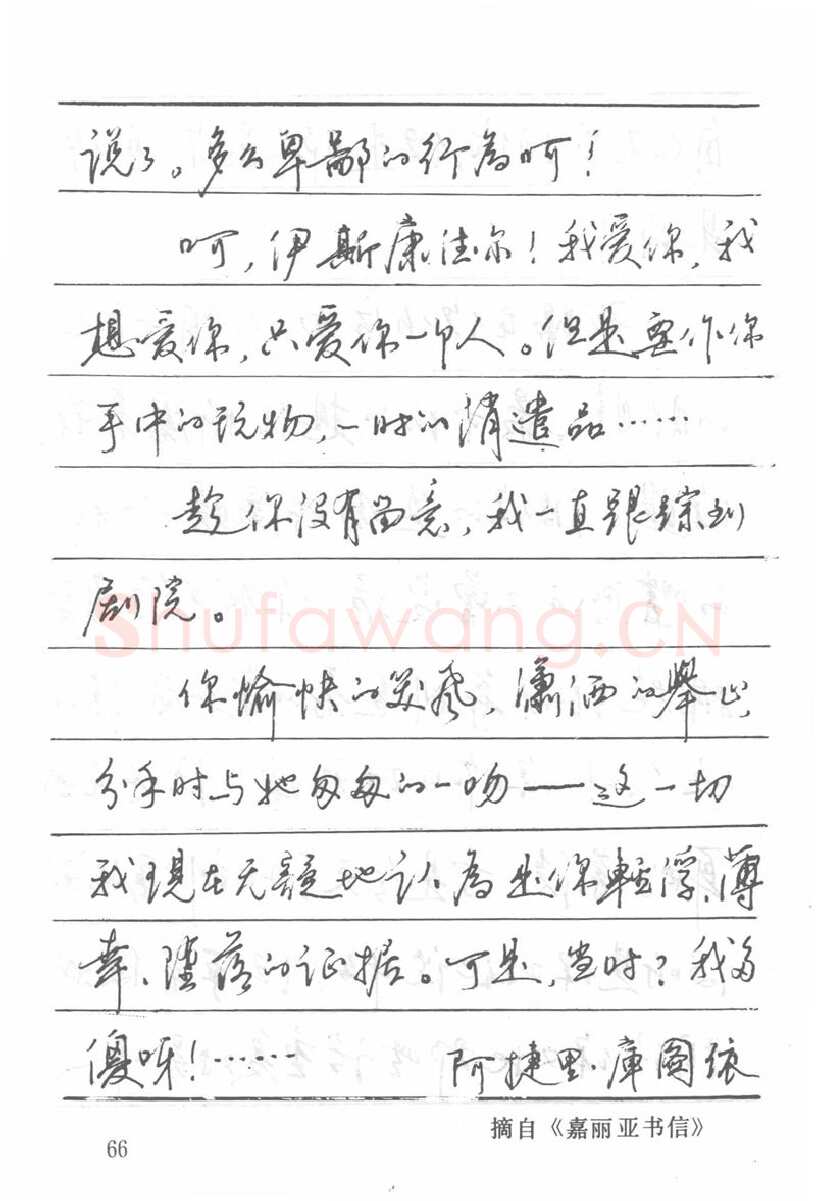 说了。多么卑鄙的行为呵！
呵，伊斯康佳尔！我爱你，我
想爱你，只爱你一个人。但是要作你
手中的玩物，一时的消遣品……
趁你没有留意，我一直跟踪到
剧院。
Shufawang.CN
你愉快的笑貌，潇洒的舉止，
分手时与她匆匆的一吻——这一切
我現在无疑地认为是你輕浮、薄
幸、堕落的证据。可是，当时？我多
傻呀！……　　阿捷里·庫图依
摘自《嘉丽亚书信》
66